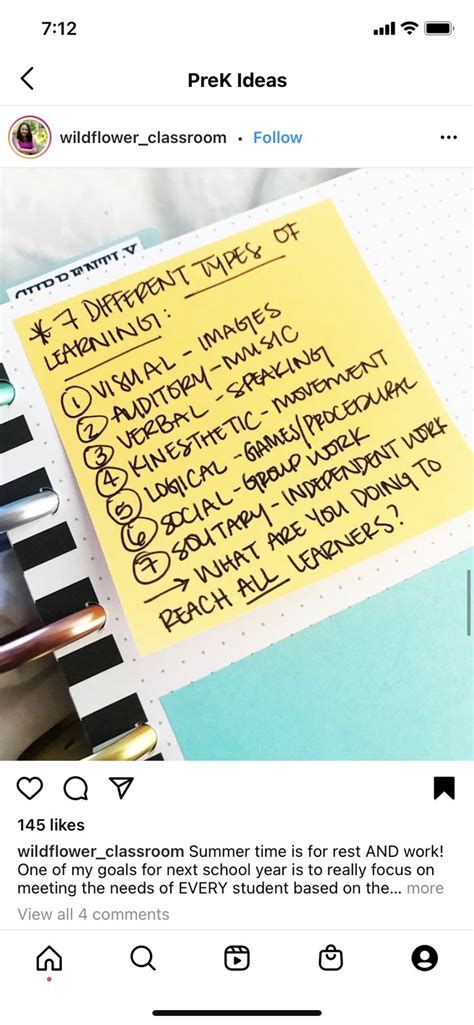 7:12
PreK Ideas
wildflower_classroom • Follow
CURRENTLY
* 7 DIFFERENT TYPES OF
LEARNING:
① VISUAL - IMAGES
② AUDITORY - MUSIC
③ VERBAL - SPEAKING
④ KINESTHETIC - MOVEMENT
⑤ LOGICAL - GAMES/PROCEDURAL
⑥ SOCIAL - GROUP WORK
⑦ SOLITARY - INDEPENDENT WORK
→ WHAT ARE YOU DOING TO
REACH ALL LEARNERS?
145 likes
wildflower_classroom Summer time is for rest AND work!
One of my goals for next school year is to really focus on
meeting the needs of EVERY student based on the... more
View all 4 comments